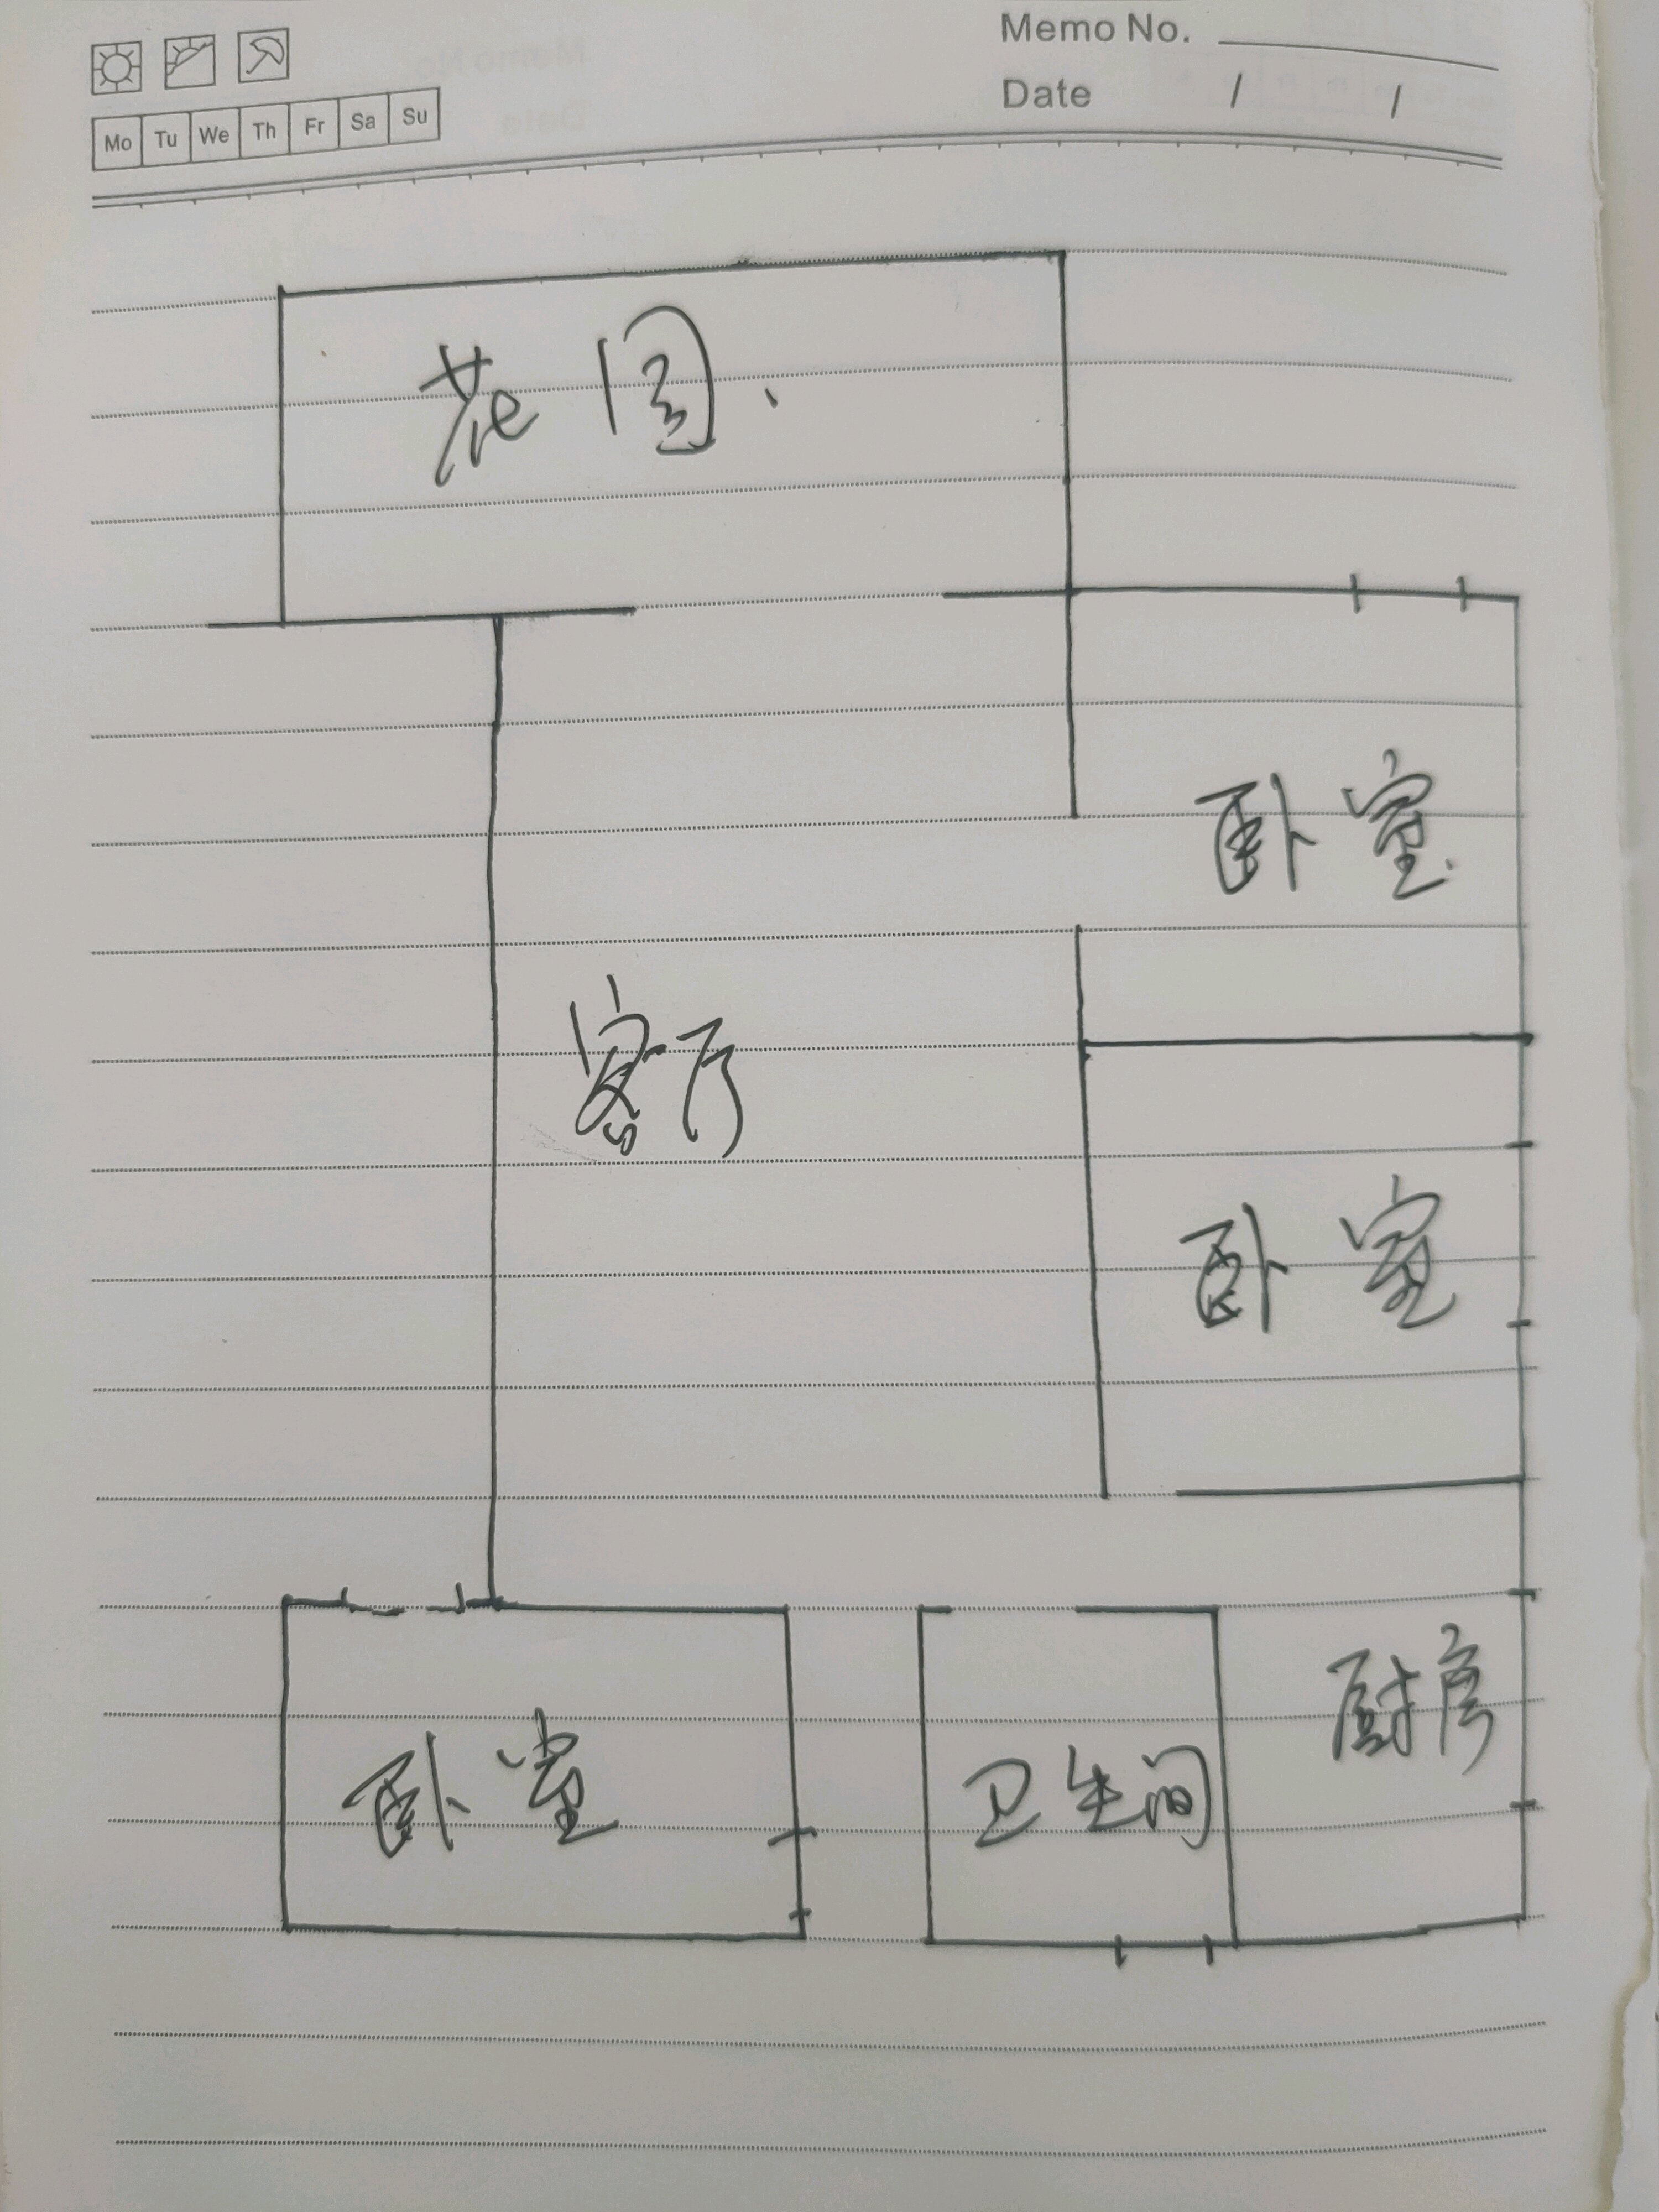 Memo No.
Date / /
Mo Tu We Th Fr Sa Su
花园
卧室
客厅
卧室
厨房
卧室
卫生间